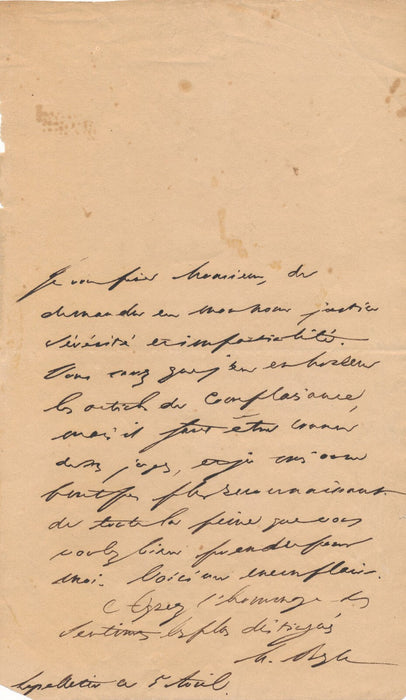 Je vous prie Monsieur, de
demander en mon nom justice
sévérité et impartialité.
Vous savez que j'ai en horreur
les articles de complaisance,
mais il faut être connu
de ses juges, et je vous
plus reconnaissant
de toute la peine que vous
voulez bien prendre pour
moi. Voici un exemplaire.
Agréez l'hommage des
sentiments les plus distingués
5 Avril